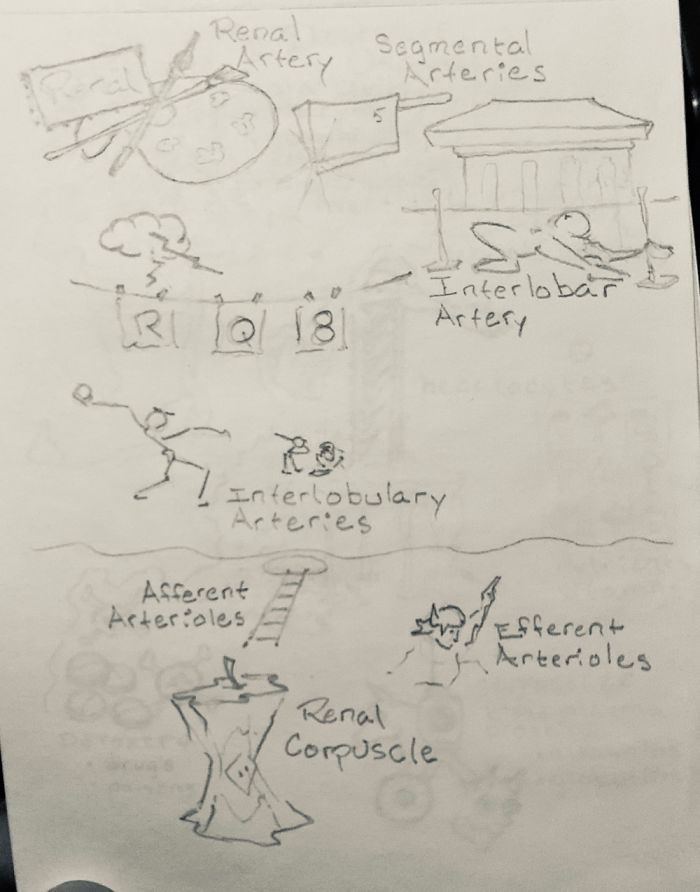 Renal
Artery
Renal
Segmental
Arteries
5
R Q 8
Interlobar
Artery
Interlobulary
Arteries
Afferent
Arterioles
Efferent
Arterioles
Renal
Corpuscle
drugs